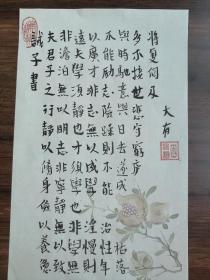 誡子書
夫君子之行靜以脩身儉以養德
非澹泊無以明志非寧靜無以致
遠夫學須靜也才須學也非學無
以廣才非志無以成學淫慢則
不能勵志險躁則不能治性年
與時馳意與日去遂成枯落
多不接世悲守窮廬
將复何及
大有